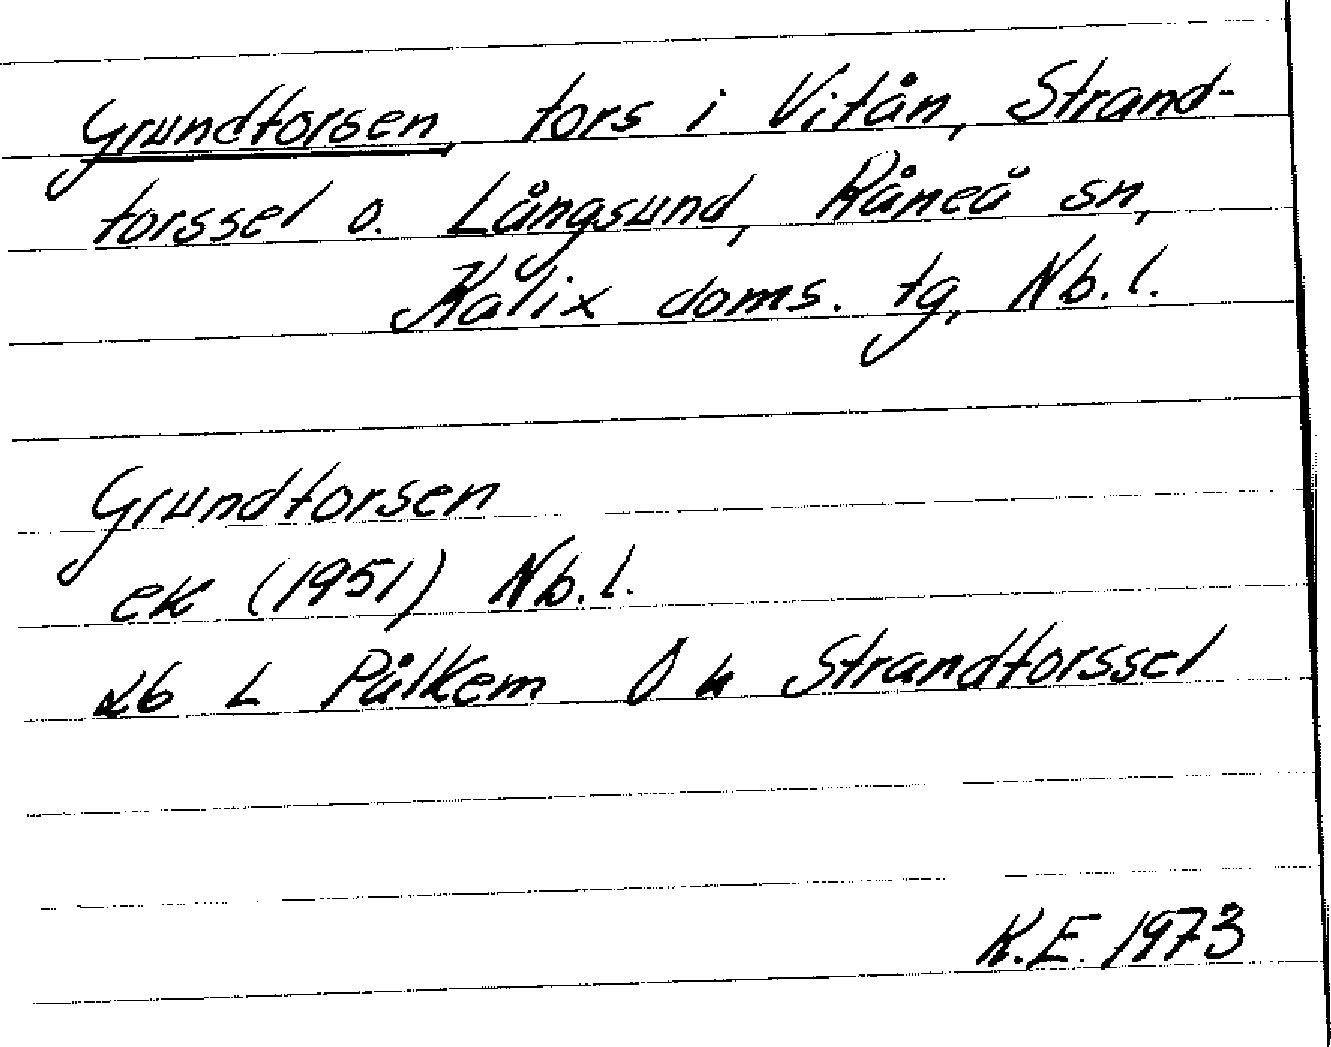 Grundforsen, fors i Vitån, Strand-
forssel o. Långsund, Råneå sn,
Kalix doms. tg, Nb. l.
Grundforsen
ek (1951) Nb. l.
26 L Pålkem Strandforssel
K.E. 1973